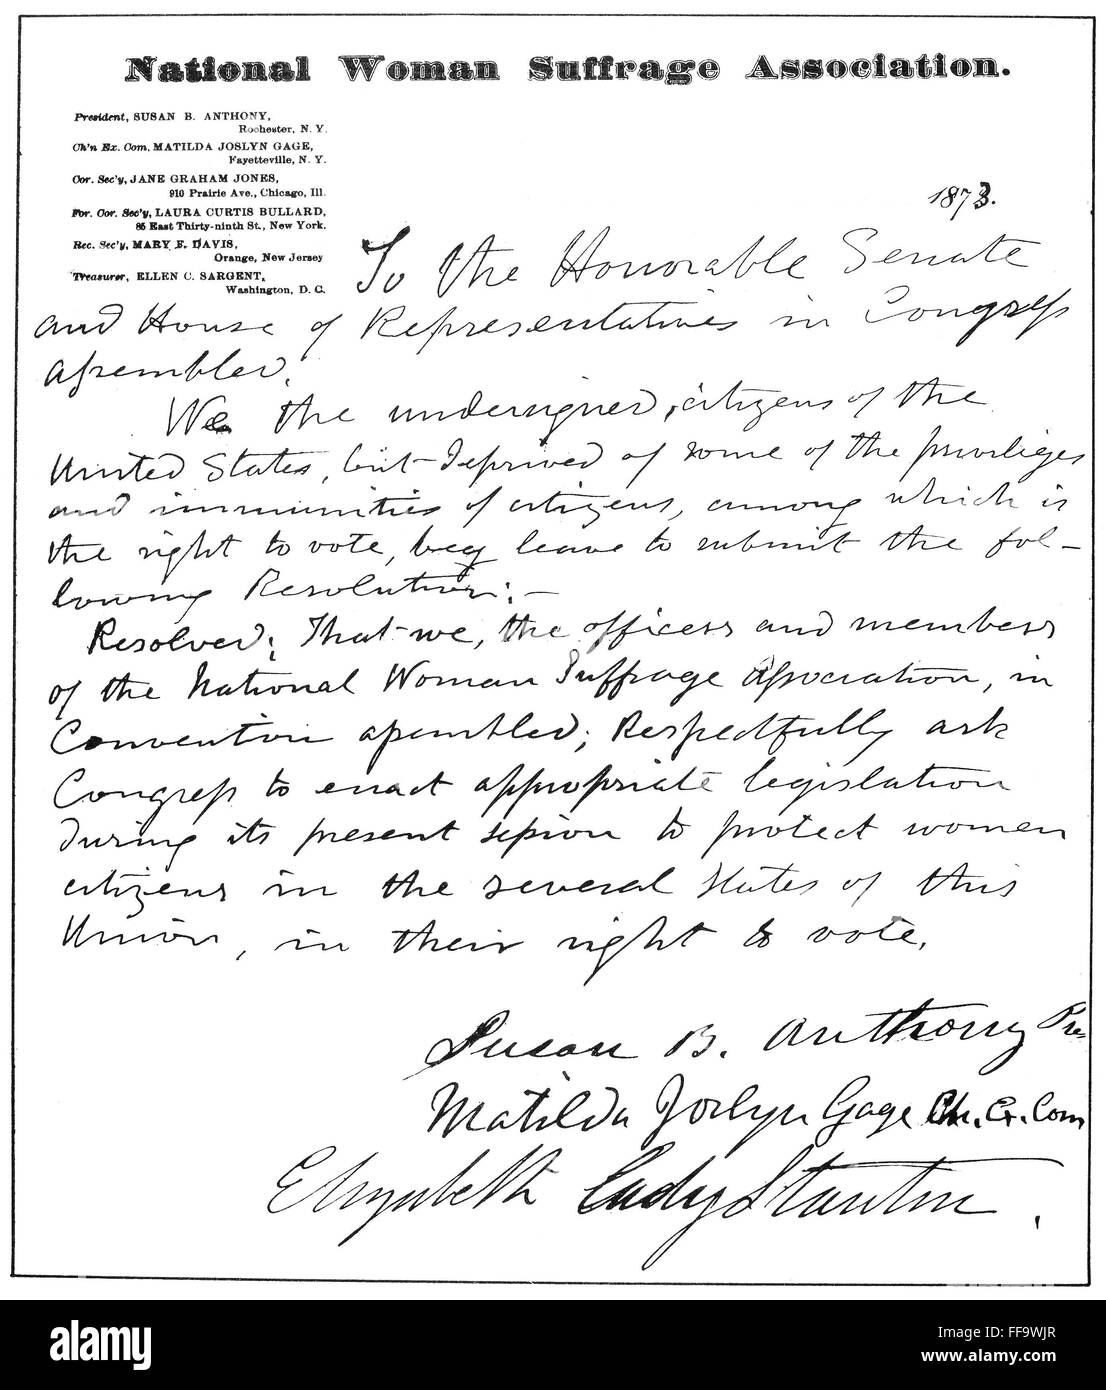 National Woman Suffrage Association.
President, SUSAN B. ANTHONY,
Rochester, N. Y.
Ch'n Ex. Com. MATILDA JOSLYN GAGE,
Fayetteville, N. Y.
Cor. Sec'y, JANE GRAHAM JONES,
910 Prairie Ave., Chicago, Ill.
For. Cor. Sec'y, LAURA CURTIS BULLARD,
85 East Thirty-ninth St., New York.
Rec. Sec'y, MARY F. DAVIS,
Orange, New Jersey
Treasurer, ELLEN C. SARGENT,
Washington, D. C.
1873.
To the Honorable Senate
and House of Representatives in Congress
assembled.
We the undersigned, citizens of the
United States, but deprived of some of the privileges
and immunities of citizens, among which is
the right to vote, beg leave to submit the fol-
lowing Resolution:-
Resolved; That we, the officers and members
of the National Woman Suffrage Association, in
Convention assembled; Respectfully ask
Congress to enact appropriate legislation
during its present session to protect women
citizens in the several States of this
Union, in their right to vote.
Susan B. Anthony Pre-
Matilda Joslyn Gage Ch. Ex. Com
Elizabeth Cady Stanton.
alamy
Image ID: FF9WJR
www.alamy.com